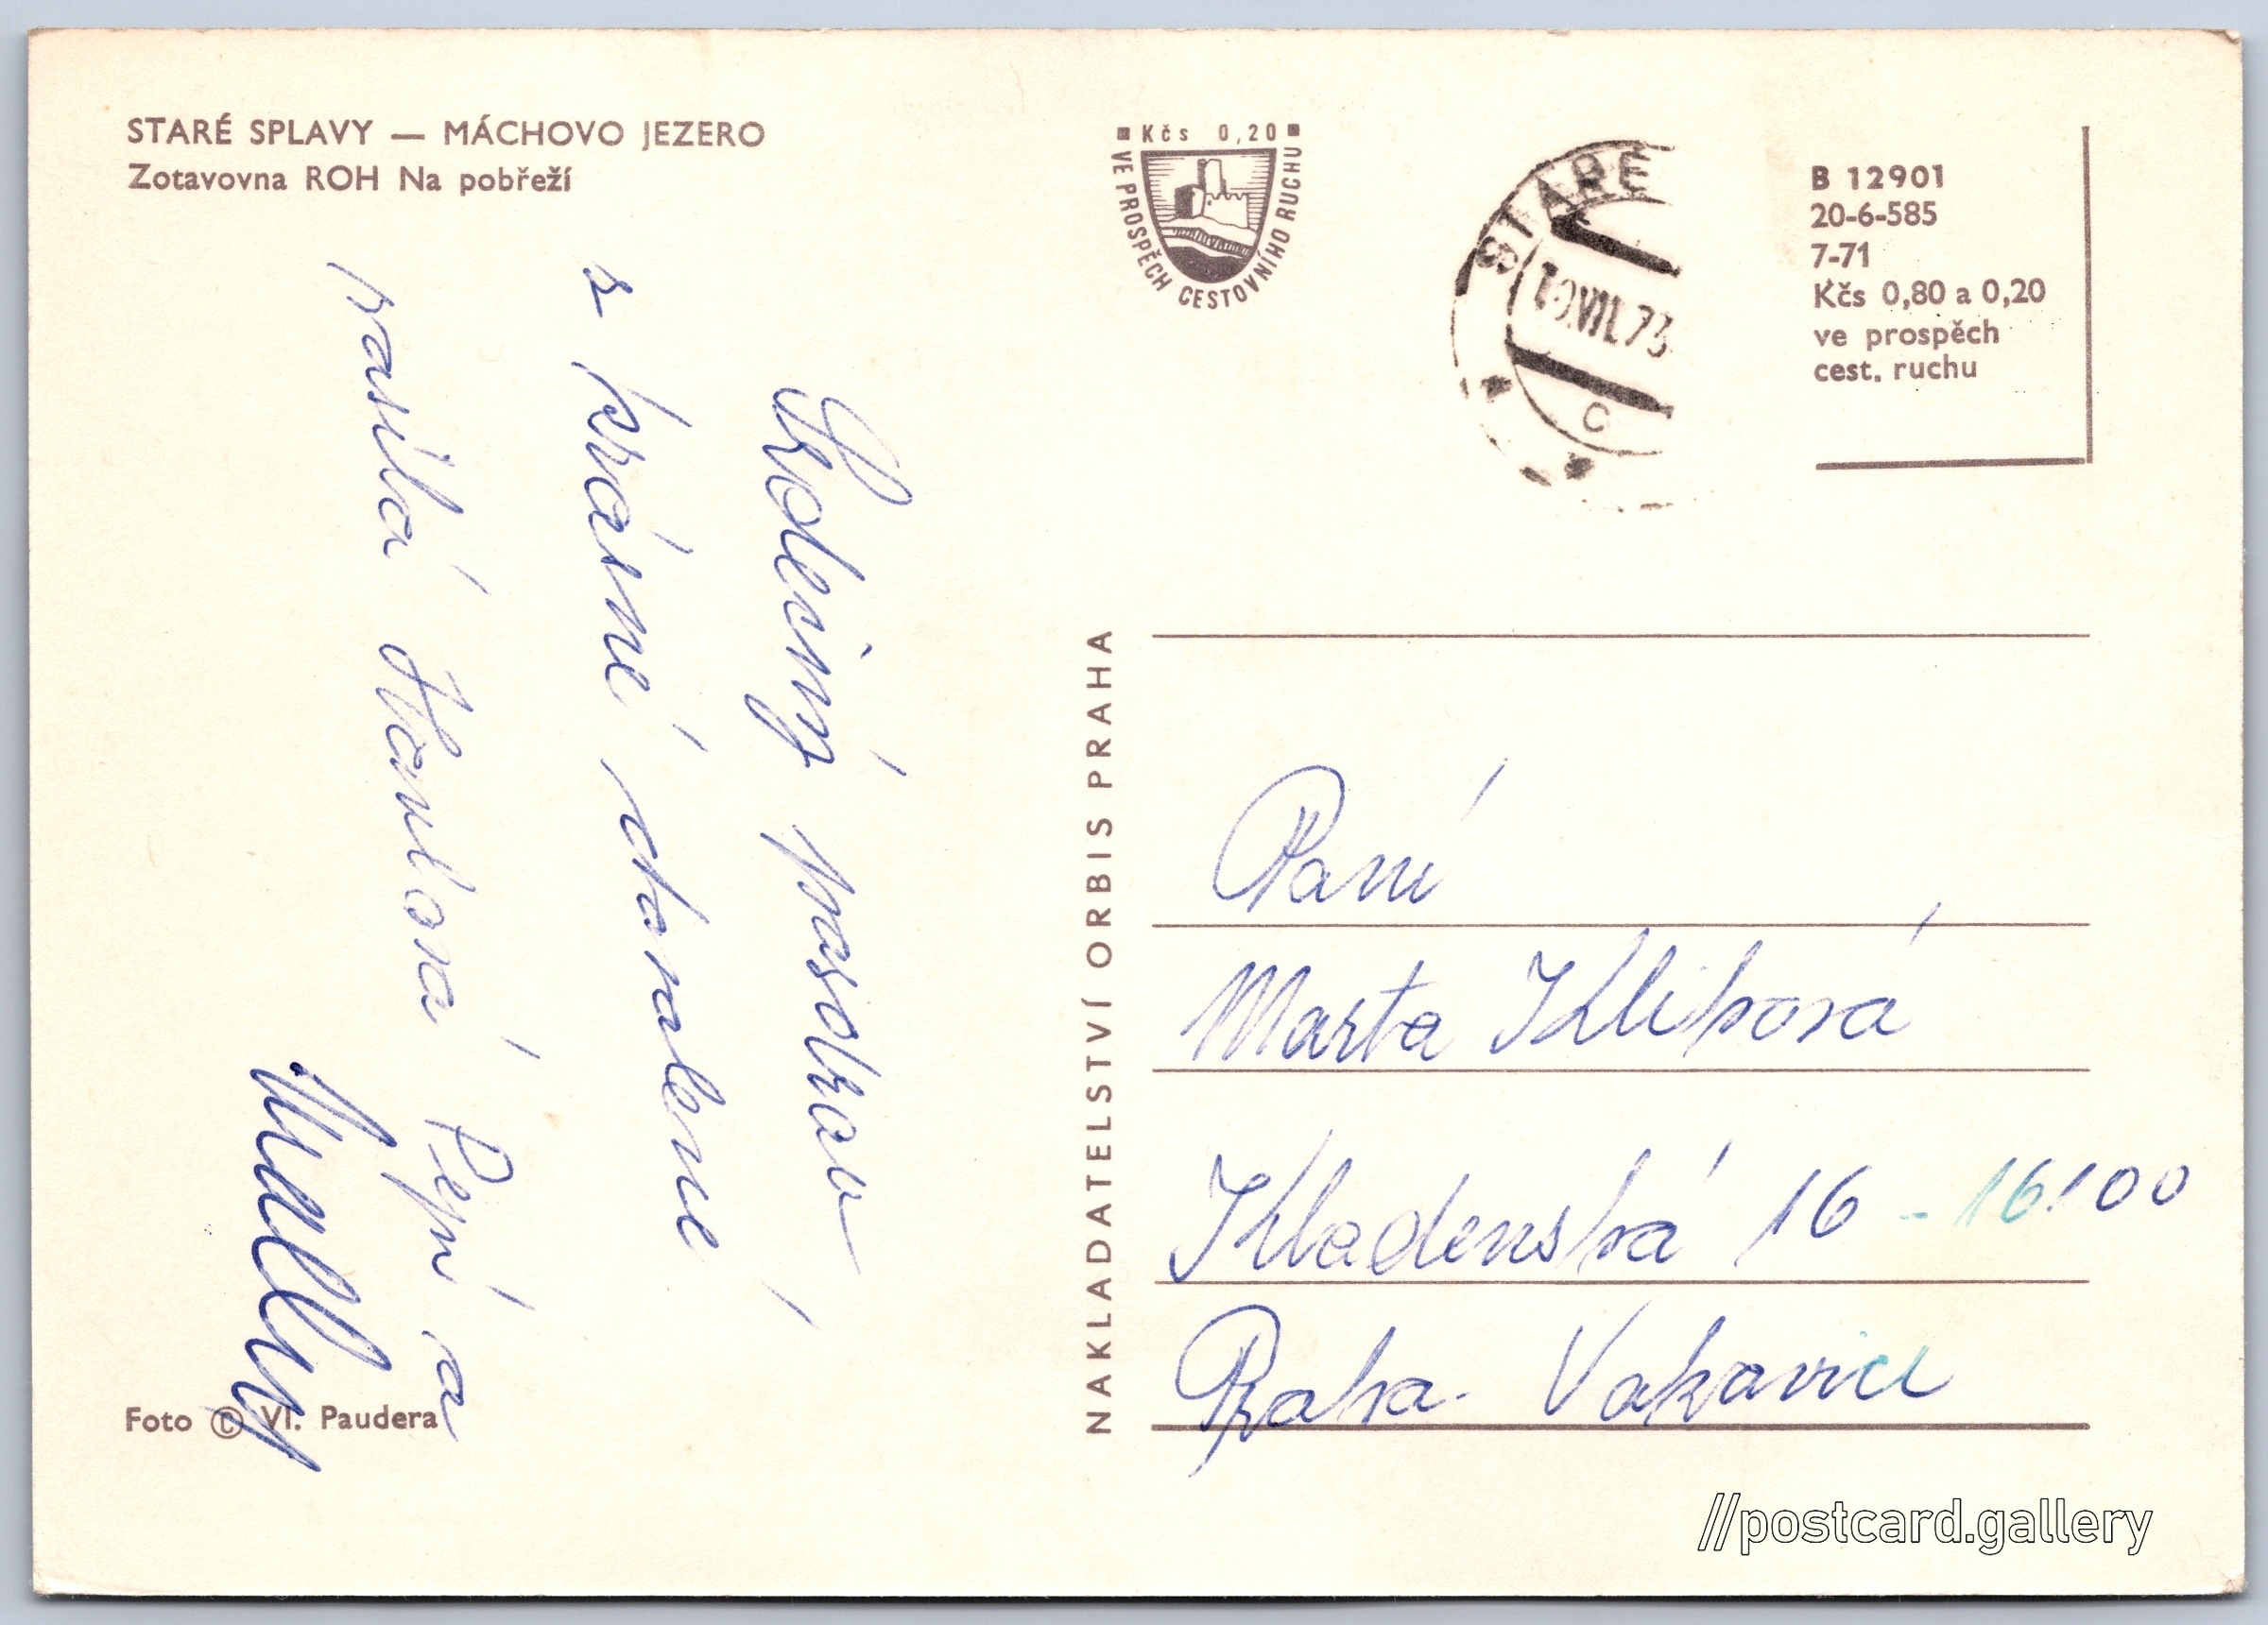 STARÉ SPLAVY — MÁCHOVO JEZERO
Zotavovna ROH Na pobřeží
Srdečný pozdrav
z krásné dovolené
zasílá Havlová Pepi a
Foto © Vl. Paudera
Kčs 0,20
VE PROSPĚCH CESTOVNÍHO RUCHU
STARÉ
10.VII.73
C
B 12901
20-6-585
7-71
Kčs 0,80 a 0,20
ve prospěch
cest. ruchu
NAKLADATELSTVÍ ORBIS PRAHA
Paní
Marta Kliková
Kladenská 16 - 16100
Praha Vokovice
//postcard.gallery